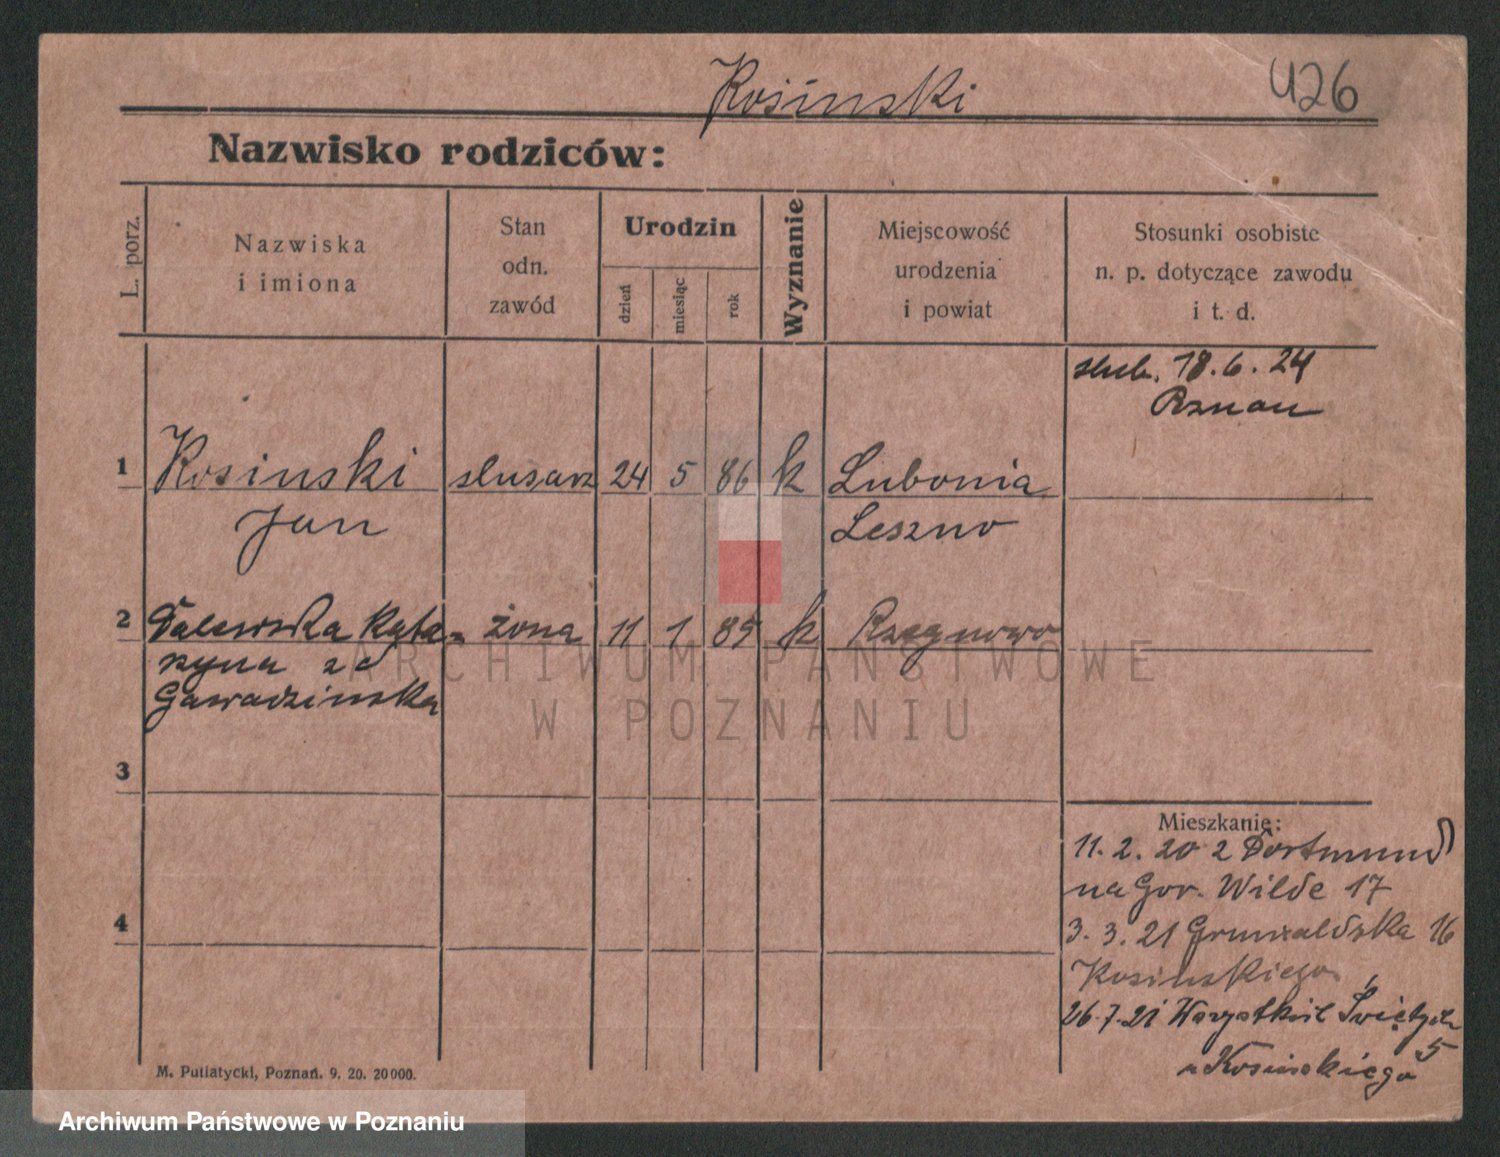 Kosinski
426
Nazwisko rodziców:
L. porz.
Nazwiska
i imiona
Stan
odn.
zawód
Urodzin
dzień
miesiąc
rok
Wyznanie
Miejscowość
urodzenia
i powiat
Stosunki osobiste
n. p. dotyczące zawodu
i t. d.
ślub. 18.6.24
Poznań
1 Kosinski ślusarz 24 5 86 k Lubonia
Jan Leszno
2 Kata- żona 11 1 85 k
rzyna z d
Gawadzinska
3
4
Mieszkanie:
11. 2. 20 z Dortmund
na Gór. Wilde 17
3. 3. 21 Grunwaldzka 16
Kosinskiego
26.7.21 Wszystkich Świętych
5
u Kosinskiego
M. Putiatycki, Poznań. 9. 20. 20000.
ARCHIWUM PAŃSTWOWE
W POZNANIU
Archiwum Państwowe w Poznaniu